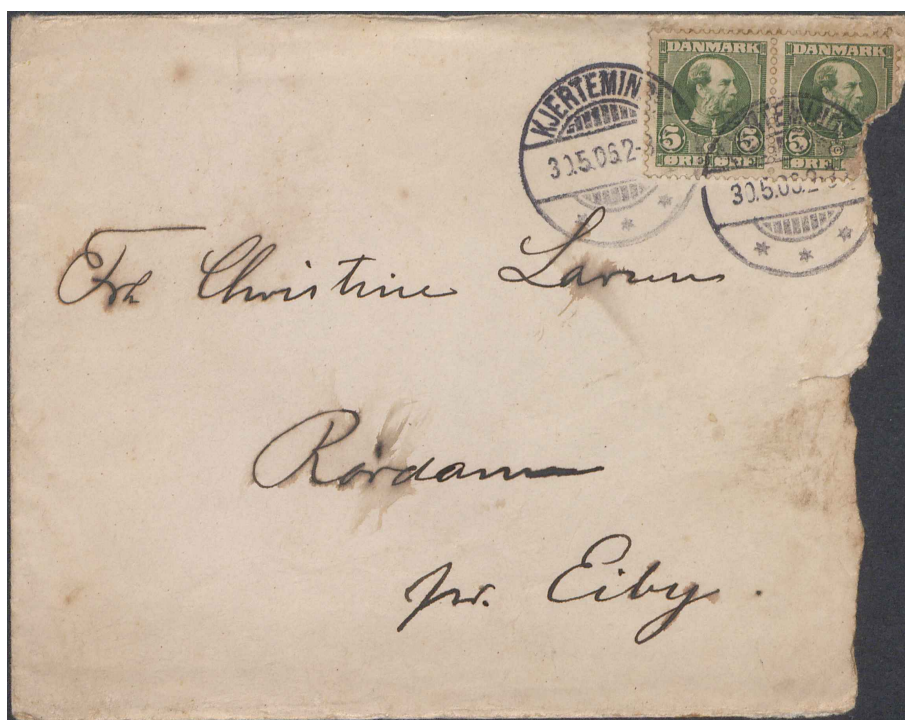 DANMARK DANMARK
5 5 5
ØRE ØRE ØRE
KJERTEMIN
30.5.06.2-
30.5.06.2-
Frk Christine Larsen
Rørdam
pr. Eiby.